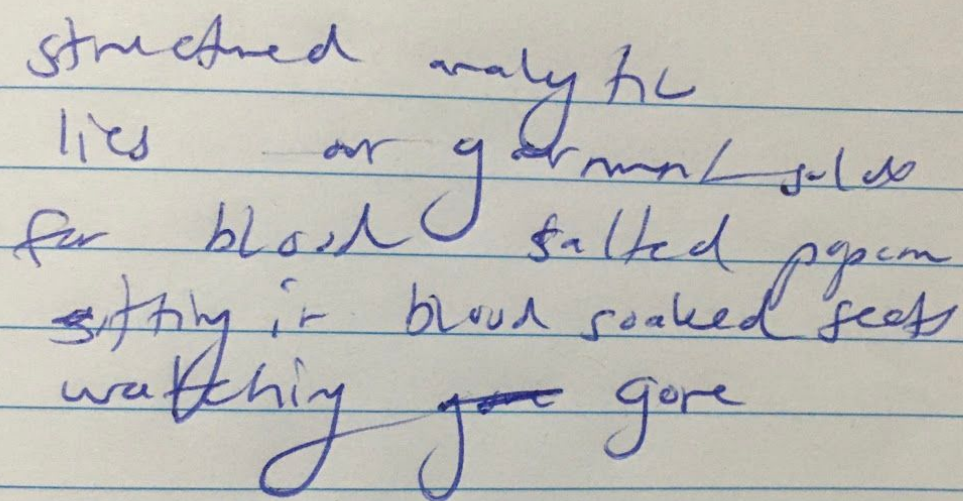 structured analytic
lies our garment sales
for blood salted popcorn
sitting in blood soaked seats
watching gore